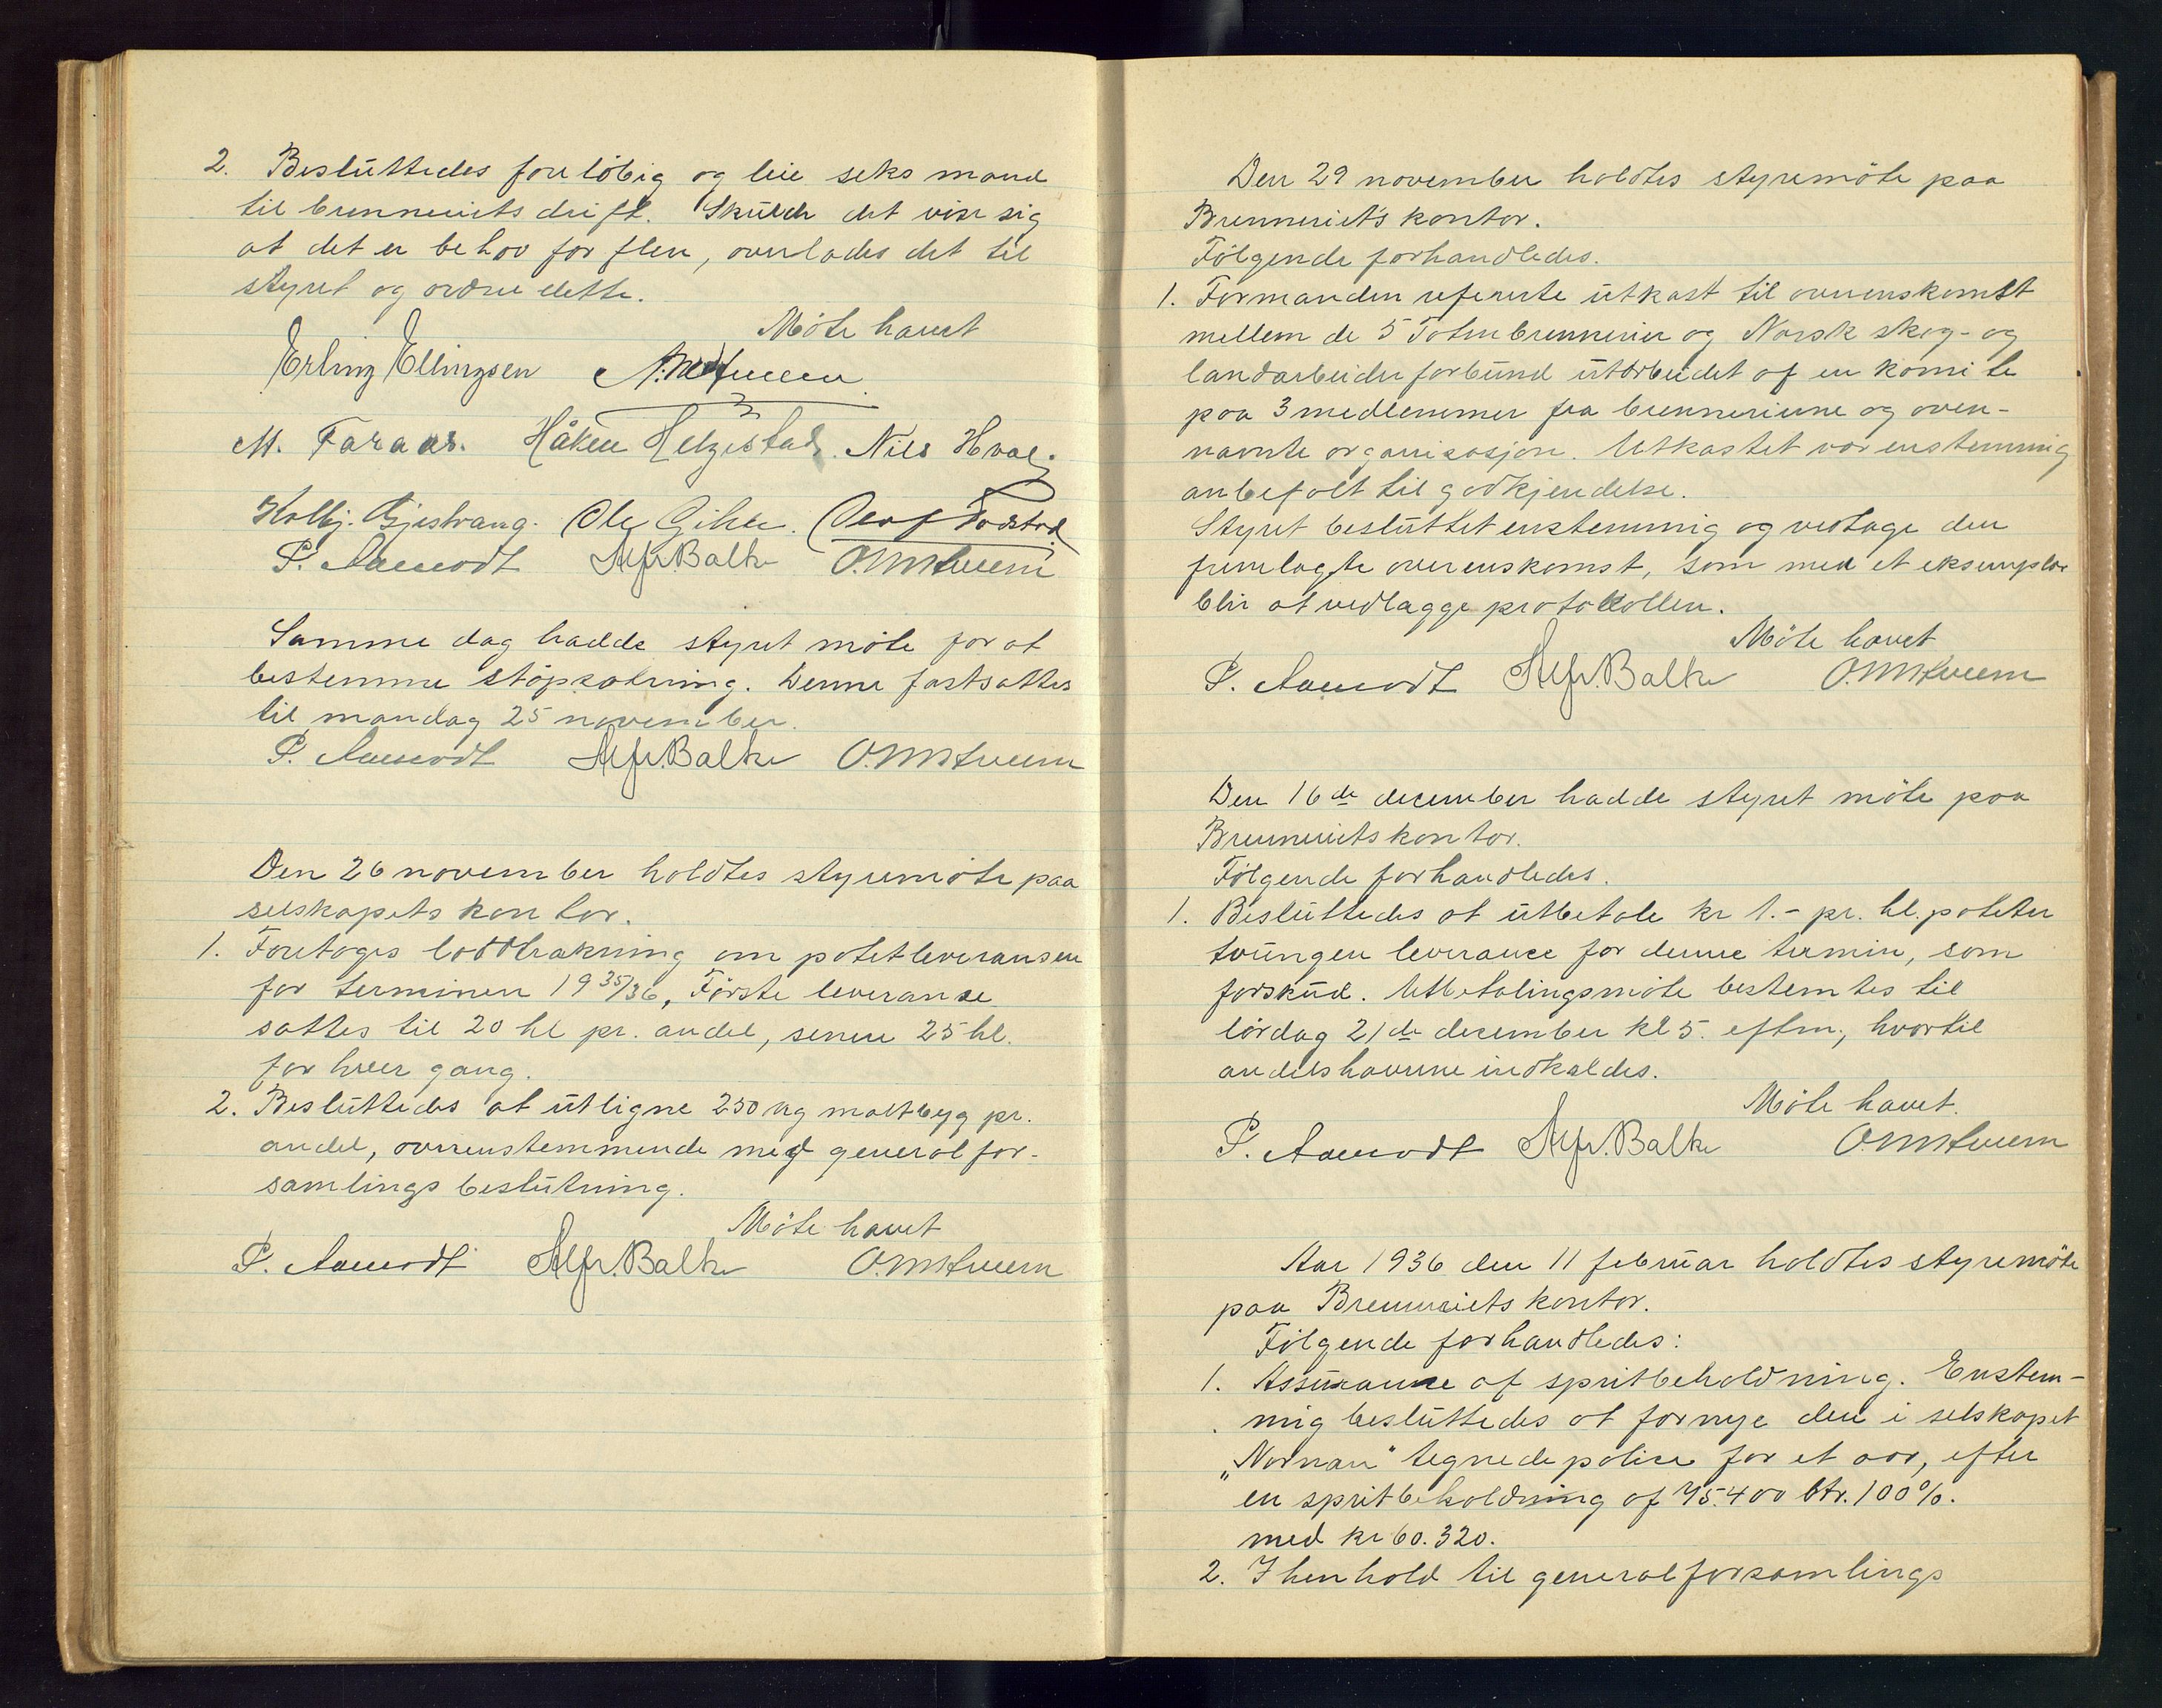 2. Besluttedes foreløbig og leie seks mand
til brenneriets drift. Skulde det vise sig
at det er behov for flere, overlades det til
styret og ordne dette.
Møte hævet
Erling Ellingsen
M. Faraas. Håken Helgestad. Nils Hval.
Kolbj. Gjestvang. Ole Gihle.
P. Aamodt Alfr. Balke
Samme dag hadde styret møte for at
bestemme støpsætning. Denne fastsattes
til mandag 25 november.
P. Aamodt Alfr. Balke
Den 26 november holdtes styremøte paa
selskapets kontor.
1. Foretoges loddtrækning om potetleveransen
for terminen 1935/36, Første leveranse
sattes til 20 hl pr. andel, senere 25 hl.
for hver gang.
2. Besluttedes at utligne 250 kg maltbyg pr.
andel, overenstemmende med generalfor-
samlings beslutning.
Møte hævet
P. Aamodt Alfr. Balke
Den 29 november holdtes styremøte paa
Brenneriet's kontor.
Følgende forhandledes.
1. Formanden refererte utkast til overenskomst
mellem de 5 Totenbrennerier og Norsk skog- og
landarbeiderforbund utarbeidet af en komite
paa 3 medlemmer fra brenneriene og oven-
nævnte organisasjon. Utkastet var enstemmig
anbefalt til godkjendelse.
Styret besluttet enstemmig og vedtage den
fremlagte overenskomst, som med et eksemplar
blir at vedlægge protokollen.
Møte hævet
P. Aamodt Alfr. Balke
Den 16de december hadde styret møte paa
Brenneriets kontor.
Følgende forhandledes.
1. Besluttedes at utbetale kr 1.- pr. hl. poteter
tvungen leverance for denne termin, som
forskud. Utbetalingsmøte bestemtes til
lørdag 21de december kl 5. eftm., hvortil
andelshaverne indkaldes.
Møte hævet.
P. Aamodt Alfr. Balke
Aar 1936 den 11 februar holdtes styremøte
paa Brenneriets kontor.
Følgende forhandledes:
1. Assurance af spritbeholdning. Enstem-
mig besluttedes at fornye den i selskapet
„Nornan“ tegnede police for et aar, efter
en spritbeholdning af 75.400 ltr. 100%.
med kr 60.320.
2. I henhold til generalforsamlings